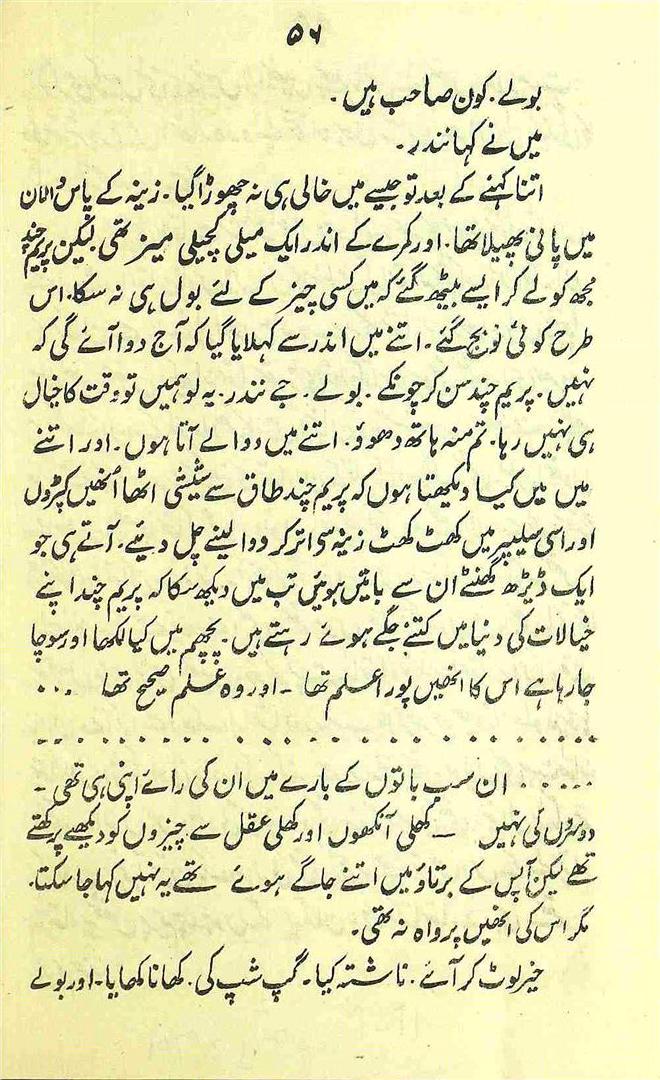 ۵۶
بولے۔ کون صاحب ہیں۔
میں نے کہا نندر۔
اتنا کہنے کے بعد تو جیسے میں خالی ہی نہ چھوڑا گیا۔ زینہ کے پاس دالان
میں پانی پھیلا تھا۔ اور کمرے کے اندر ایک میلی کچیلی میز تھی لیکن پریم چند
مجھ کو لے کر ایسے بیٹھ گئے کہ میں کسی چیز کے لئے بول ہی نہ سکا۔ اس
طرح کوئی نو بج گئے۔ اتنے میں اندر سے کہلایا گیا کہ آج دوا آئے گی کہ
نہیں۔ پریم چند سن کر چونکے۔ بولے۔ جے نندر۔ یہ لو ہمیں تو وقت کا خیال
ہی نہیں رہا۔ تم منہ ہاتھ دھوؤ۔ اتنے میں دوا لے آتا ہوں۔ اور اتنے
میں میں کیا دیکھتا ہوں کہ پریم چند طاق سے شیشی اٹھا اُنھیں کپڑوں
اور اسی سلیپر میں کھٹ کھٹ زینہ سے اتر کر دوا لینے چل دیئے۔ آتے ہی جو
ایک ڈیڑھ گھنٹے ان سے باتیں ہوئیں تب میں دیکھ سکا کہ پریم چند اپنے
خیالات کی دنیا میں کتنے جگے ہوئے رہتے ہیں۔ پچھم میں کیا لکھا اور سوچا
جا رہا ہے اس کا انھیں پورا علم تھا - اور وہ علم صحیح تھا ۰۰۰
۰۰۰۰۰۰۰۰۰۰۰۰۰۰۰۰۰۰۰۰۰۰
۰۰۰۰۰ ان سب باتوں کے بارے میں ان کی رائے اپنی ہی تھی -
دوسروں کی نہیں — کھلی آنکھوں اور کھلی عقل سے چیزوں کو دیکھتے پرکھتے
تھے لیکن آپس کے برتاؤ میں اتنے جاگے ہوئے تھے یہ نہیں کہا جا سکتا۔
مگر اس کی انھیں پرواہ نہ تھی۔
خیر لوٹ کر آئے۔ ناشتہ کیا۔ گپ شپ کی۔ کھانا کھایا۔ اور بولے